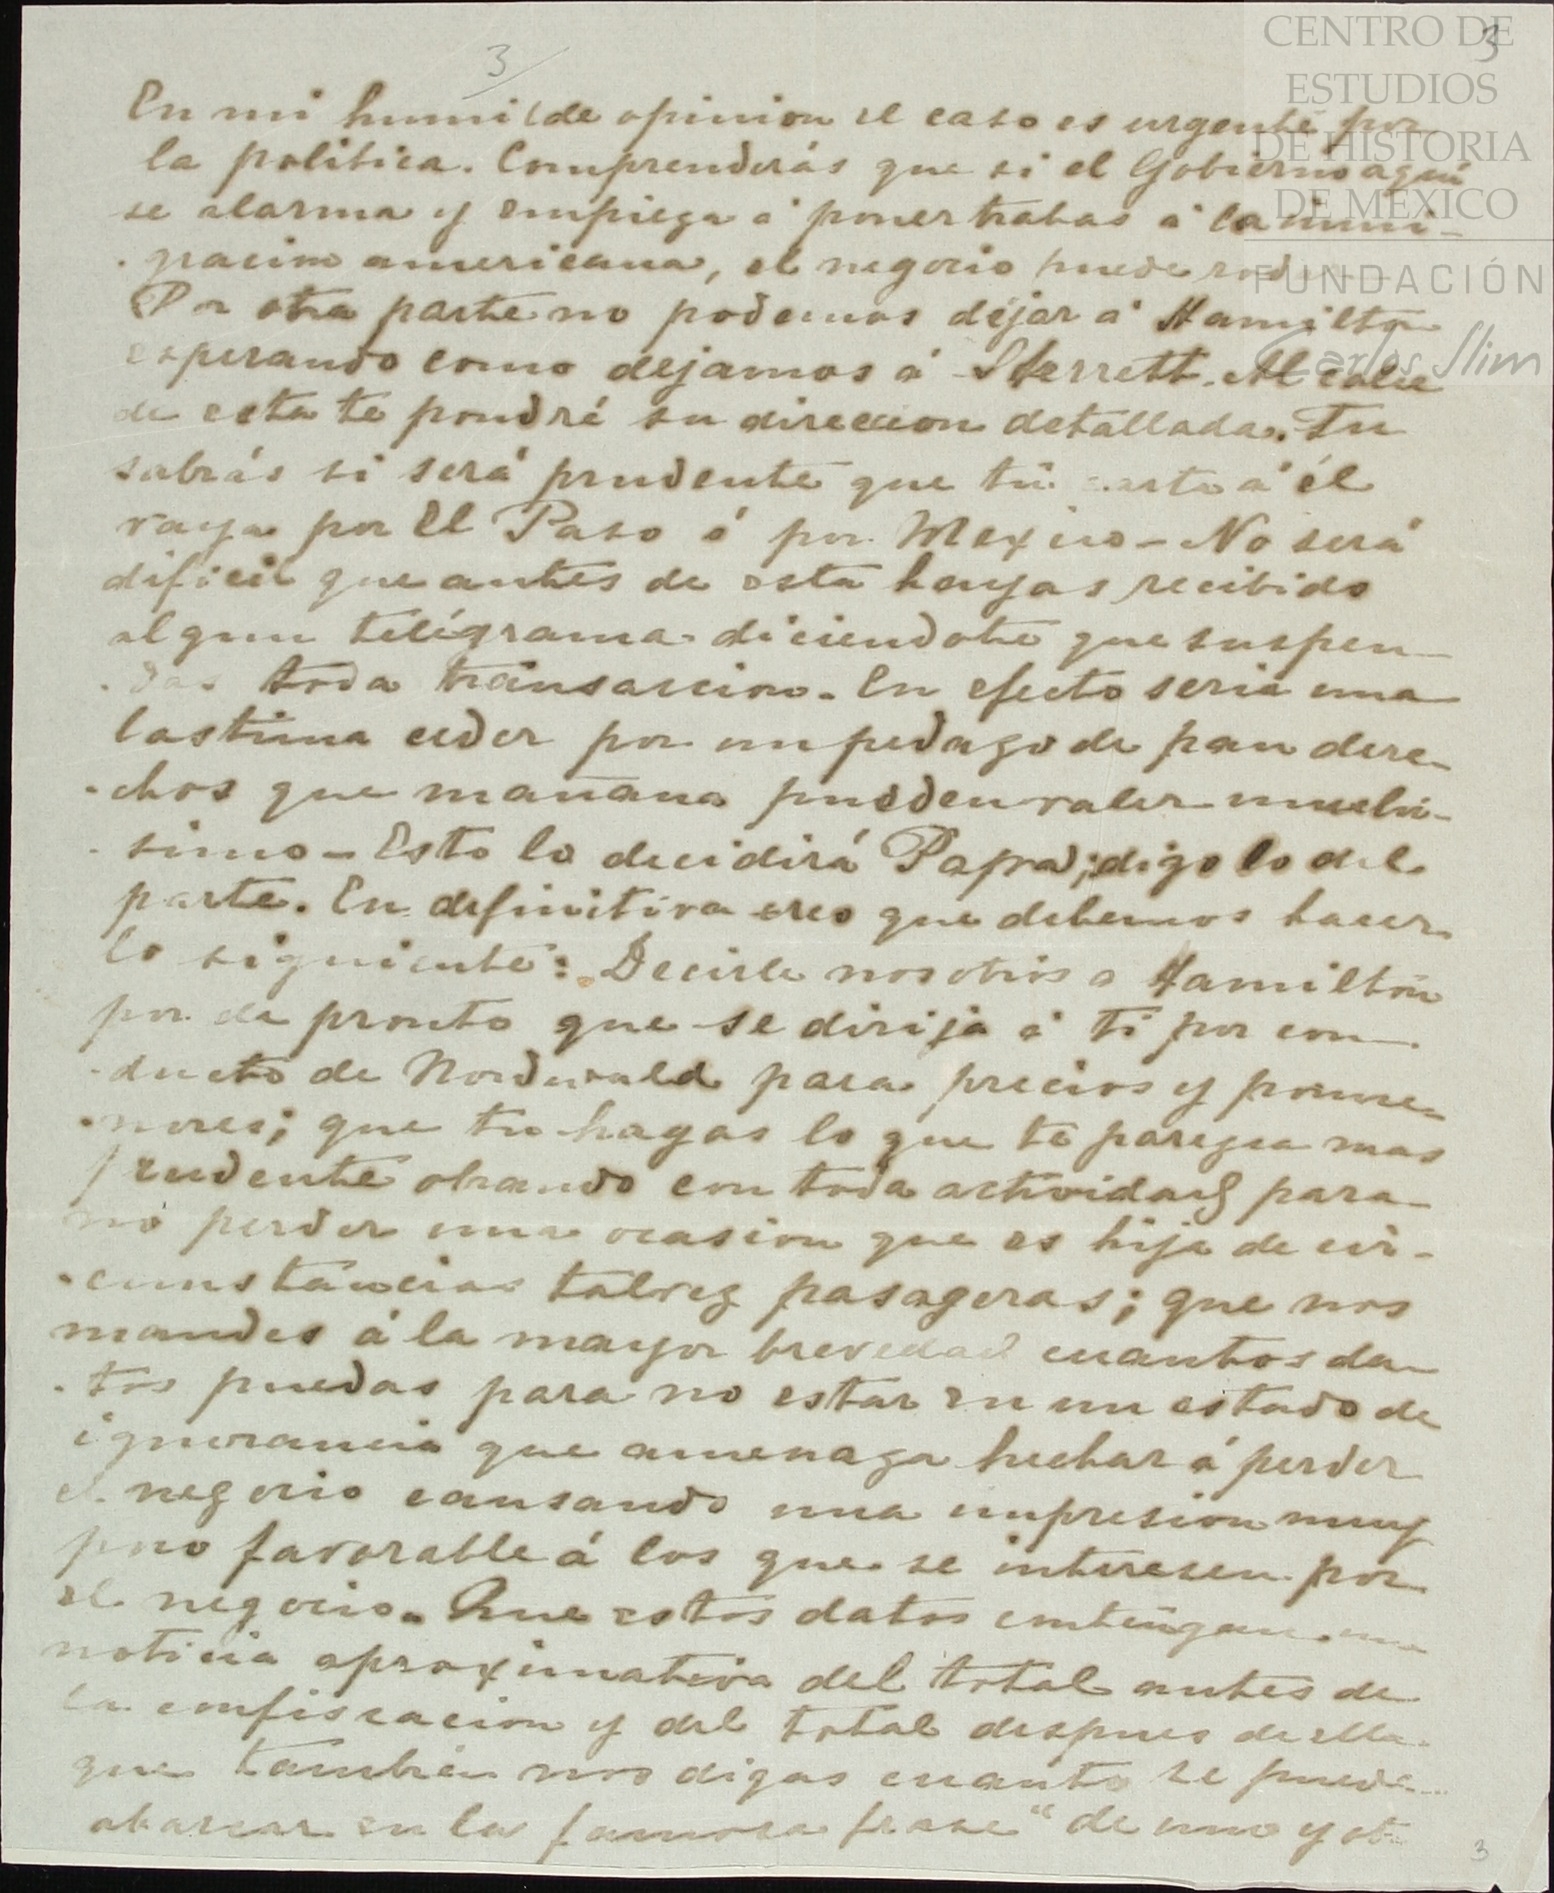 3
3
CENTRO DE
ESTUDIOS
DE HISTORIA
DE MÉXICO
FUNDACIÓN
Carlos Slim
En mi humilde opinion el caso es urgente por
la politica. Comprenderás que si el Gobierno aquí
se alarma y empieza á poner trabas á la inmi-
gracion americana, el negocio puede
Por otra parte no podemos dejar á Hamilton
esperando como dejamos á Sterrett. Al calce
de esta te pondré su direccion detallada. Tu
sabrás si será prudente que tu carta á él
vaya por El Paso ó por Mexico - No será
dificil que antes de esta hayas recibido
algun telégrama diciendote que suspen-
das toda transaccion. En efecto seria una
lastima ceder por un pedazo de pan dere-
chos que mañana pueden valer muchi-
simo - Esto lo decidirá Papá; digo lo del
parte. En definitiva creo que debemos hacer
lo siguiente: Decirle nosotros a Hamilton
por de pronto que se dirija á ti por con-
ducto de Nordwald para precios y porme-
nores; que tu hagas lo que te parezca mas
prudente obrando con toda actividad para
no perder una ocasion que es hija de cir-
cunstancias talvez pasageras; que nos
mandes á la mayor brevedad cuantos da-
tos puedas para no estar en un estado de
ignorancia que amenaza hechar á perder
el negocio causando una impresion muy
poco favorable á los que se interesen por
el negocio. Que estos datos contengan una
noticia aproximativa del total antes de
la confiscacion y del total despues de ella
que tambien nos digas cuanto se puede
abarcar en la famosa frase "de uno y ot
3